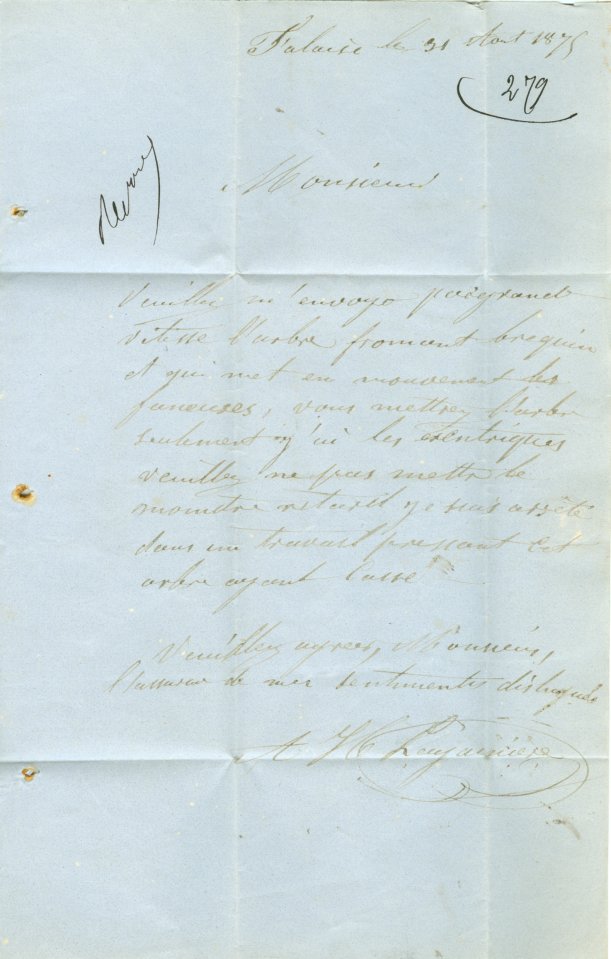 Falaise le 31 Aout 1875
279
Monsieur
Veuillez m'envoyo par grand
vitesse l'arbre fromant brequin
et qui met en mouvement les
faneuses, vous mettrez l'arbr
seulement j'ai les exentriques
veuillez ne pas mettre le
moindre retard je suis arrêté
dans un travail pressant cet
arbre ayant cassé
Veuillez agreer, Monsieur,
de mes sentiments distingués
A